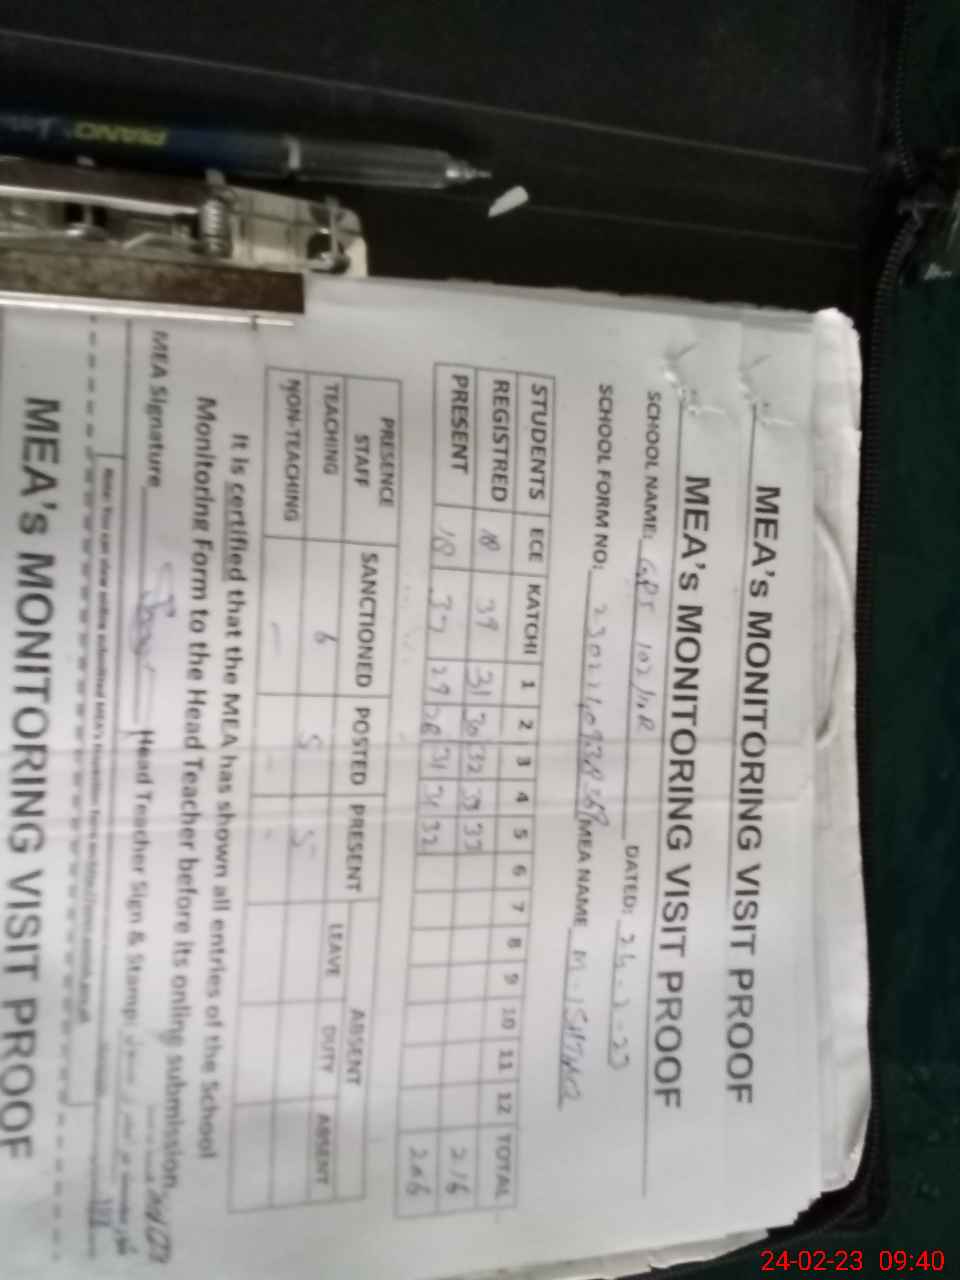 MEA's MONITORING VISIT PROOF
MEA's MONITORING VISIT PROOF
SCHOOL NAME: GPS 102/10R DATED: 24-2-23
SCHOOL FORM NO: MEA NAME
STUDENTS ECE KATCHI 1 2 3 4 5 6 7 8 9 10 11 12 TOTAL
REGISTRED 18 39 31 30 32 33 33 216
PRESENT 18 37 29 28 31 31 32 206
PRESENCE STAFF SANCTIONED POSTED PRESENT ABSENT
LEAVE DUTY ABSENT
TEACHING 6 5 5
NON-TEACHING - - -
It is certified that the MEA has shown all entries of the School
Monitoring Form to the Head Teacher before its online submission.
MEA Signature Head Teacher Sign & Stamp:
Note: You can view online submitted MEA's
MEA's MONITORING VISIT PROOF
PIANO
24-02-23 09:40